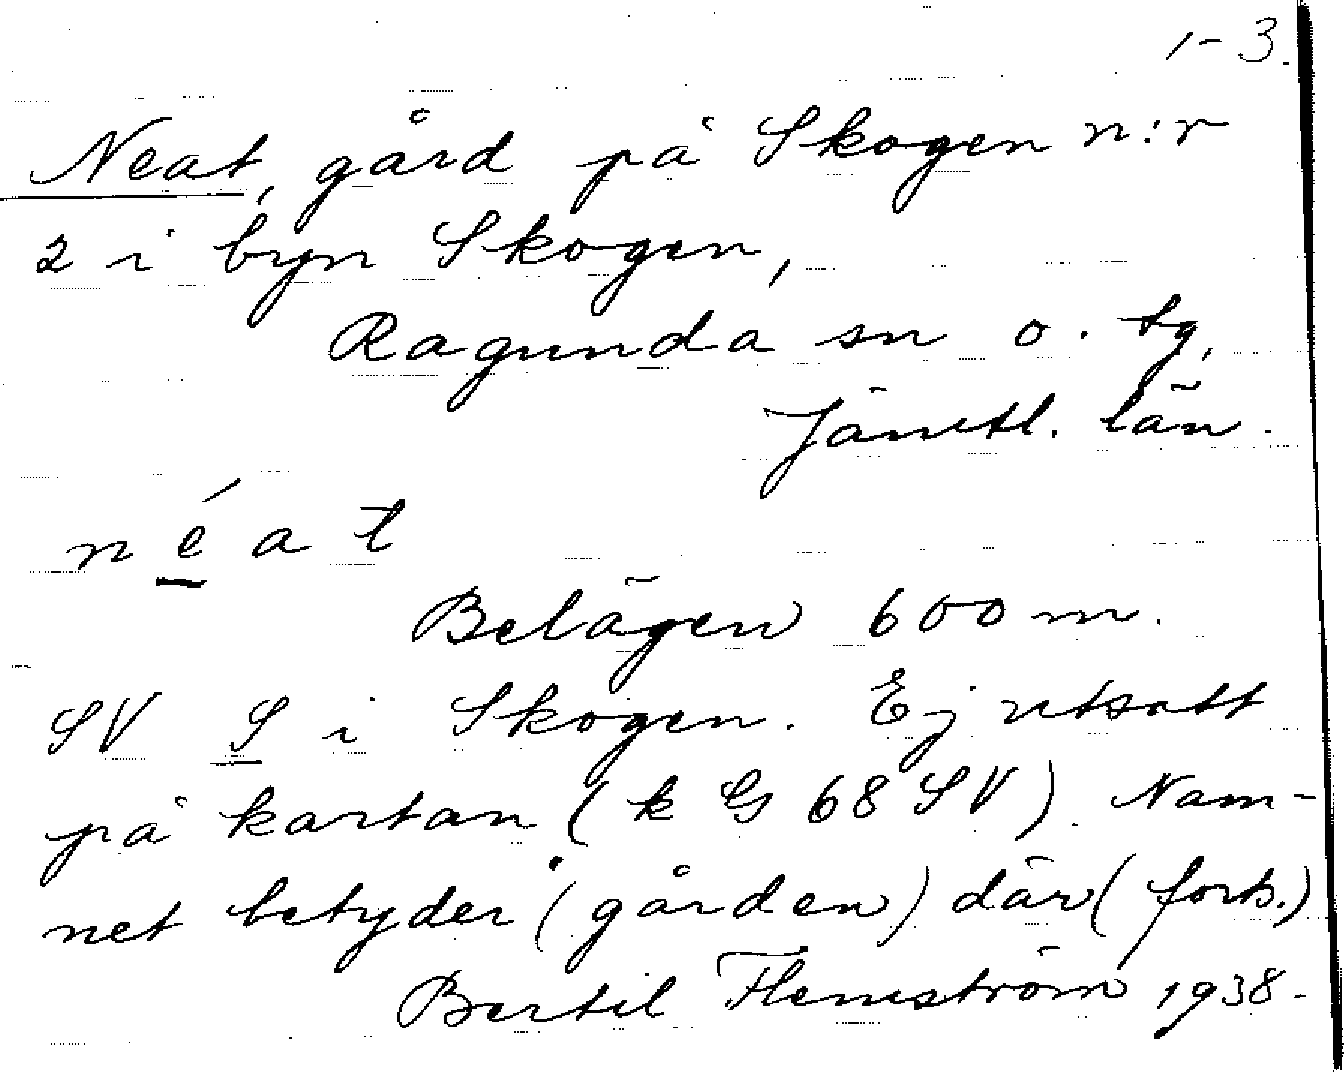 1-3.
Neat, gård på Skogen n:r
2 i byn Skogen,
Ragunda sn o. tg,
Jämtl. län.
néat
Belägen 600 m.
SV S i Skogen. Ej utsatt
på kartan (k G 68 SV). Nam-
net betyder (gården) där (forts.)
Bertil Flemström 1938.